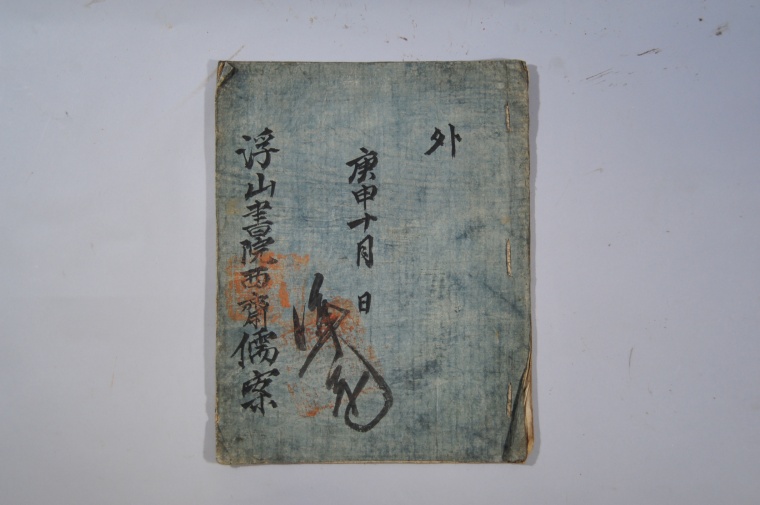 外
庚申十月 日
浮山書院西齋儒案